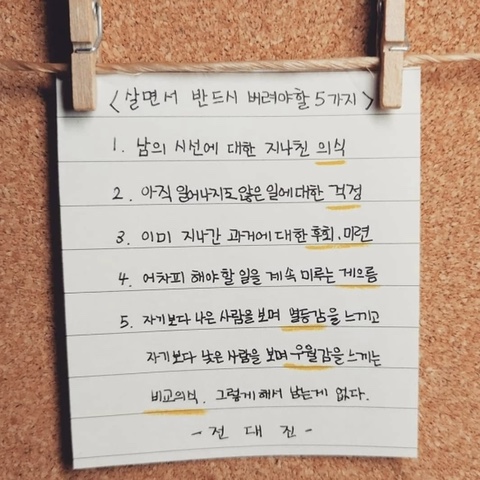 <살면서 반드시 버려야할 5가지>
1. 남의 시선에 대한 지나친 의식
2. 아직 일어나지도 않은 일에 대한 걱정
3. 이미 지나간 과거에 대한 후회, 미련
4. 어차피 해야 할 일을 계속 미루는 게으름
5. 자기보다 나은 사람을 보며 열등감을 느끼고
자기보다 낮은 사람을 보며 우월감을 느끼는
비교의식. 그렇게 해서 남는게 없다.
- 전 대 진 -